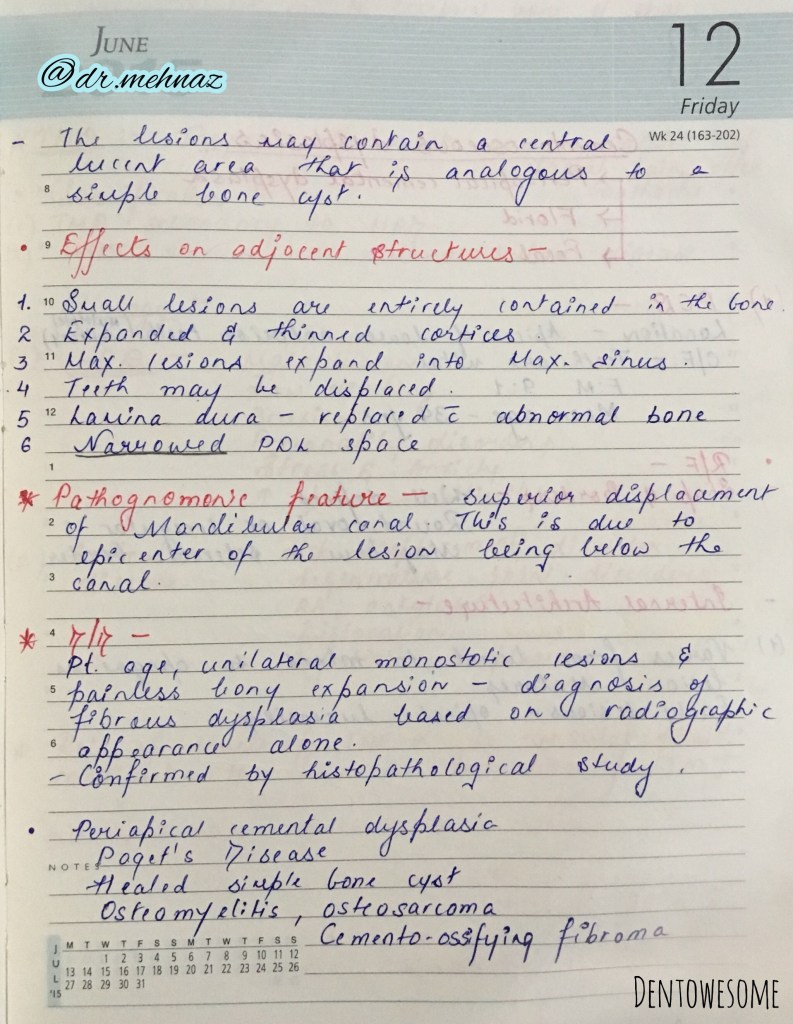 JUNE
@dr.mehnaz
12
Friday
Wk 24 (163-202)
- The lesions may contain a central
lucent area that is analogous to a
8 simple bone cyst.
• 9 Effects on adjacent structures -
1. 10 Small lesions are entirely contained in the bone.
2 Expanded & thinned cortices.
3 11 Max. lesions expand into Max. sinus.
4 Teeth may be displaced.
5 12 Lamina dura - replaced c̄ abnormal bone
6 Narrowed PDL space
1
* Pathognomonic feature - superior displacement
2 of Mandibular canal. This is due to
epicenter of the lesion being below the
3 canal.
* 4 D/D -
Pt. age, unilateral monostotic lesions &
5 painless bony expansion - diagnosis of
fibrous dysplasia based on radiographic
6 appearance alone.
- Confirmed by histopathological study.
• Periapical cemental dysplasia
NOTES Paget's Disease
Healed simple bone cyst
Osteomyelitis, osteosarcoma
Cemento-ossifying fibroma
JUL '15
M T W T F S S M T W T F S S
1 2 3 4 5 6 7 8 9 10 11 12
13 14 15 16 17 18 19 20 21 22 23 24 25 26
27 28 29 30 31
DENTOWESOME